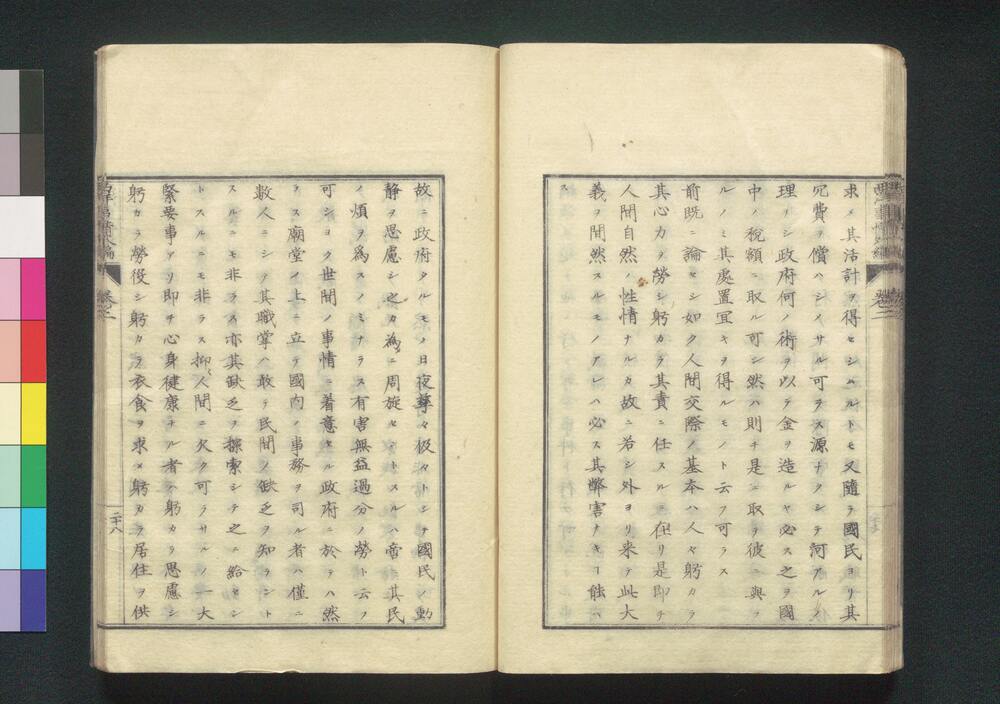 求メ其活計ヲ得セシムルトモ又隨テ國民ヨリ其
冗費ヲ償ハシメサル可ラス源ナクシテ河アルノ
理ナシ政府何ノ術ヲ以テ金ヲ造ルヤ必ス之ヲ國
中ノ税額ニ取ル可シ然ハ則チ是ニ取テ彼ニ與フ
ルノミ其處置宜キヲ得ルモノト云フ可ラス
前既ニ論セシ如ク人間交際ノ基本ハ人々躬カラ
其心力ヲ勞シ躬カラ其責ニ任スルニ在リ是即チ
人間自然ノ性情ナルカ故ニ若シ外ヨリ来テ此大
義ヲ間然スルモノアレハ必ス其弊害ナキヿ能ハ
ス
故ニ政府タルモノ日夜孳々汲々トシテ國民ノ動
静ヲ思慮シ之カ為ニ周旋セントスルハ啻ニ其民
ノ煩ヲ為スノミナラス有害無益過分ノ勞ト云フ
可シヨク世間ノ事情ニ着意セル政府ニ於テハ然
ラス廟堂ノ上ニ立テ國内ノ事務ヲ司ル者ハ僅ニ
数人ニシテ其職掌ハ敢テ民間ノ缺乏ヲ知ラント
スルニモ非ラス亦其缺乏ヲ探索シテ之ニ給セン
トスルニモ非ラス抑人間ニ欠ク可ラサルノ一大
緊要事アリ即チ心身健康ナル者ハ躬カラ思慮シ
躬カラ勞役シ躬カラ衣食ヲ求メ躬カラ居住ヲ供
巻之二
二十八